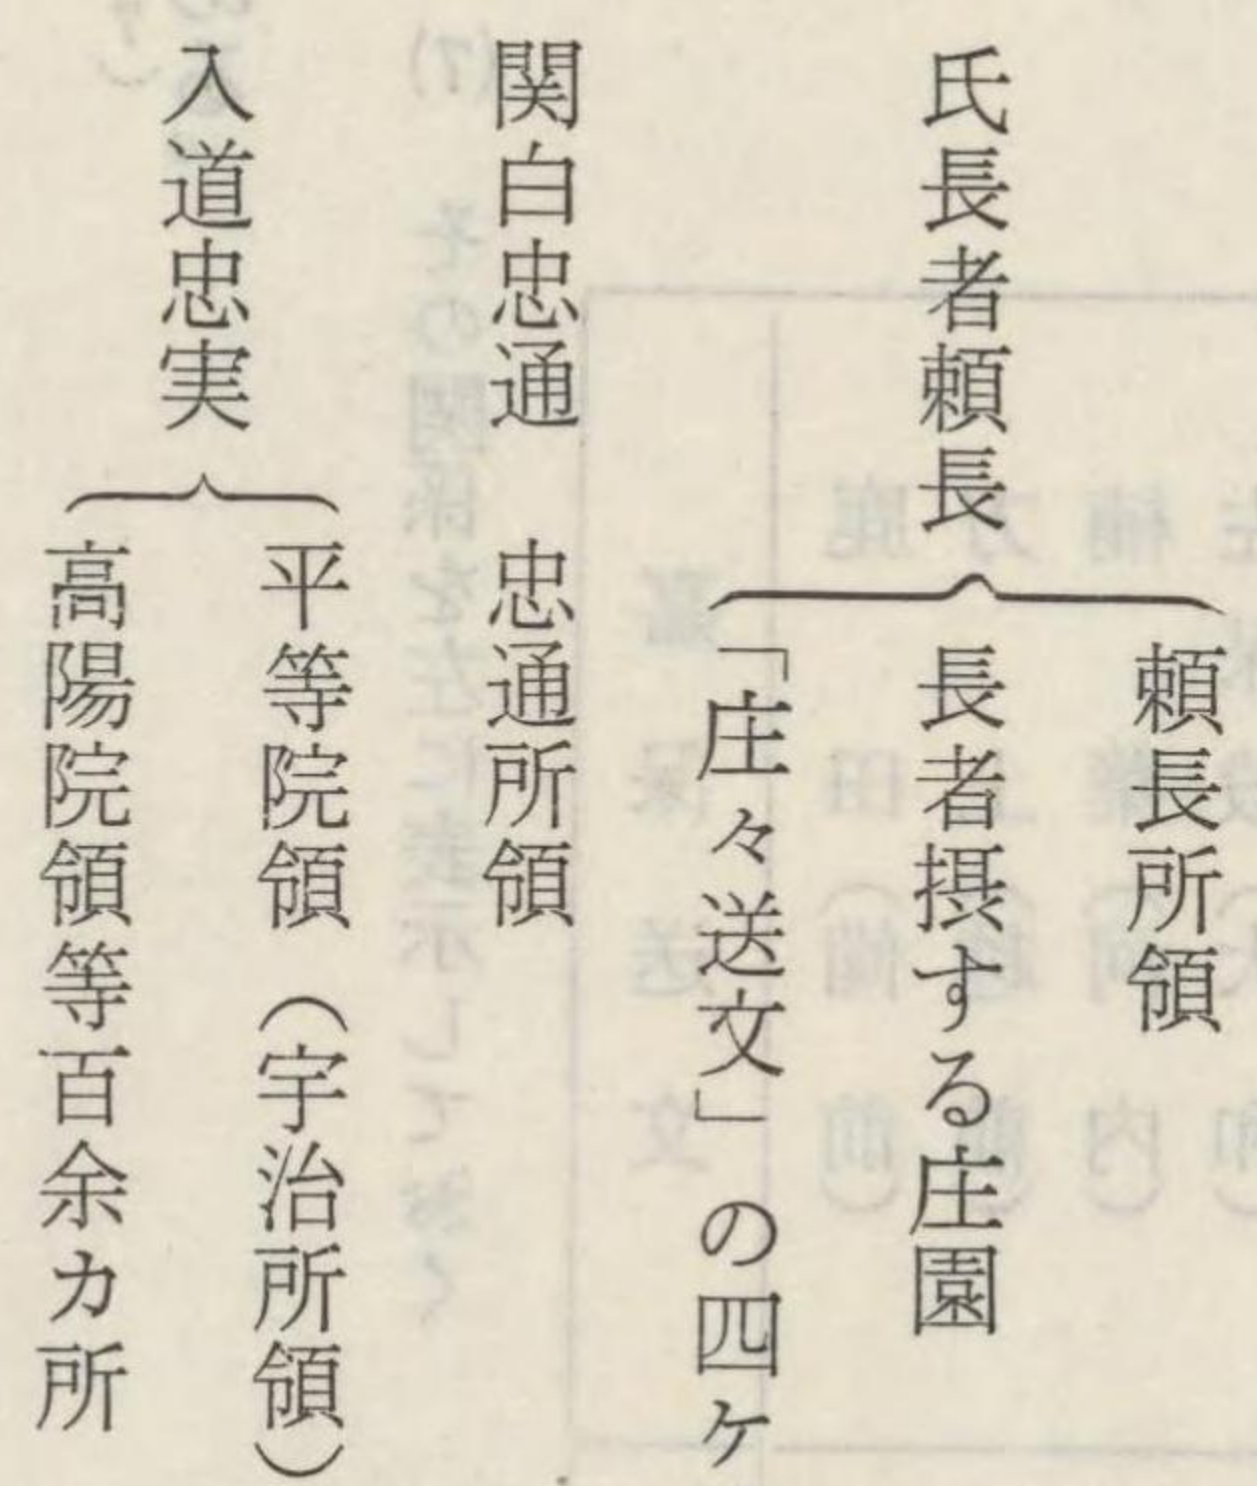 頼長所領
氏長者頼長
長者摂する庄園
「庄々送文」の四ケ
関白忠通　忠通所領
入道忠実
平等院領（宇治所領）
高陽院領等百余カ所